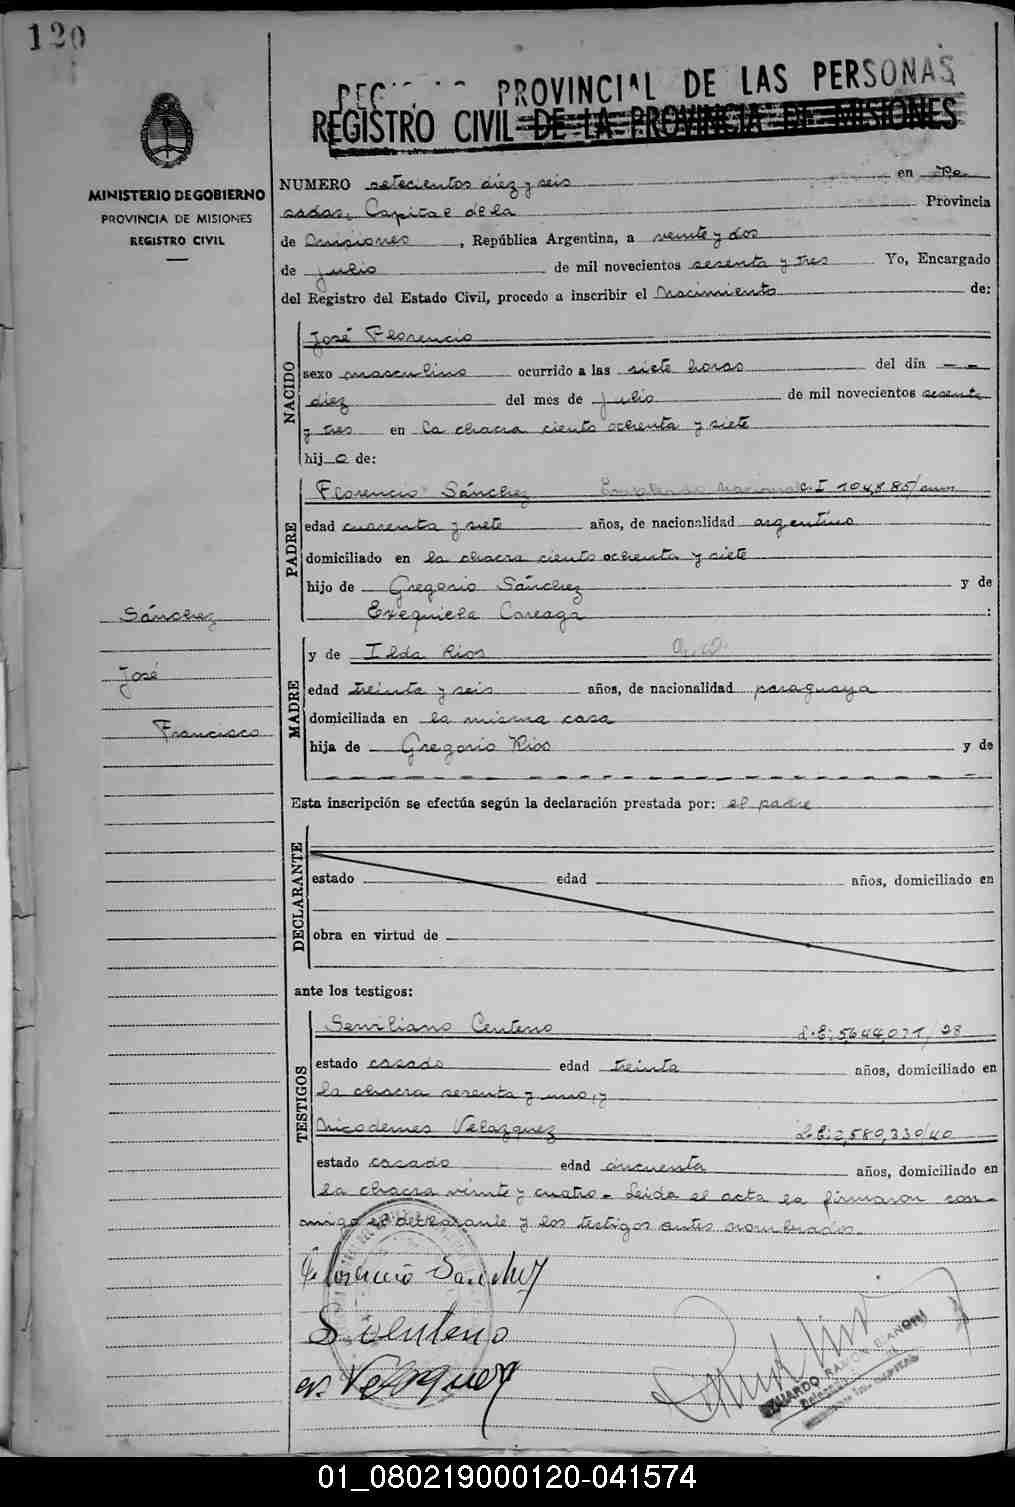 120
PROVINCIAL DE LAS PERSONAS
REGISTRO CIVIL DE LA PROVINCIA DE MISIONES
MINISTERIO DE GOBIERNO
PROVINCIA DE MISIONES
REGISTRO CIVIL
NUMERO setecientos diez y seis en Po
sadas, Capital de la Provincia
de Misiones, República Argentina, a veinte y dos
de julio de mil novecientos sesenta y tres Yo, Encargado
del Registro del Estado Civil, procedo a inscribir el Nacimiento de:
NACIDO
José Florencio
sexo masculino ocurrido a las siete horas del día
diez del mes de julio de mil novecientos sesenta
y tres en la chacra ciento ochenta y siete
hijo de:
PADRE
Florencio Sánchez
edad cuarenta y siete años, de nacionalidad argentino
domiciliado en la chacra ciento ochenta y siete
hijo de Gregorio Sánchez y de
Exequiela Careaga :
Sánchez
José
Francisco
MADRE
y de Ilda Rios
edad treinta y seis años, de nacionalidad paraguaya
domiciliada en la misma casa
hija de Gregorio Rios y de
Esta inscripción se efectúa según la declaración prestada por: el padre
DECLARANTE
estado edad años, domiciliado en
obra en virtud de
ante los testigos:
TESTIGOS
Serviliano Centeno
estado casado edad treinta años, domiciliado en
la chacra sesenta y uno, y
Nicodemes Velazquez
estado casado edad cincuenta años, domiciliado en
la chacra veinte y cuatro.- Leida el acta la firmaron con-
migo el declarante y los testigos antes nombrados.
Florencio Sanchez
S Centeno
N. Velazquez
EDUARDO RAMON BIANCHI
01_080219000120-041574